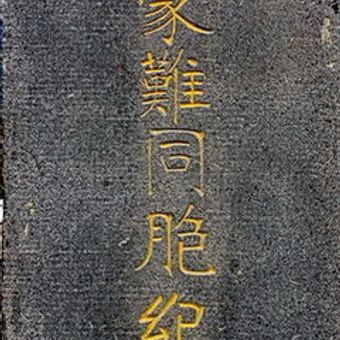 蒙難同胞紀